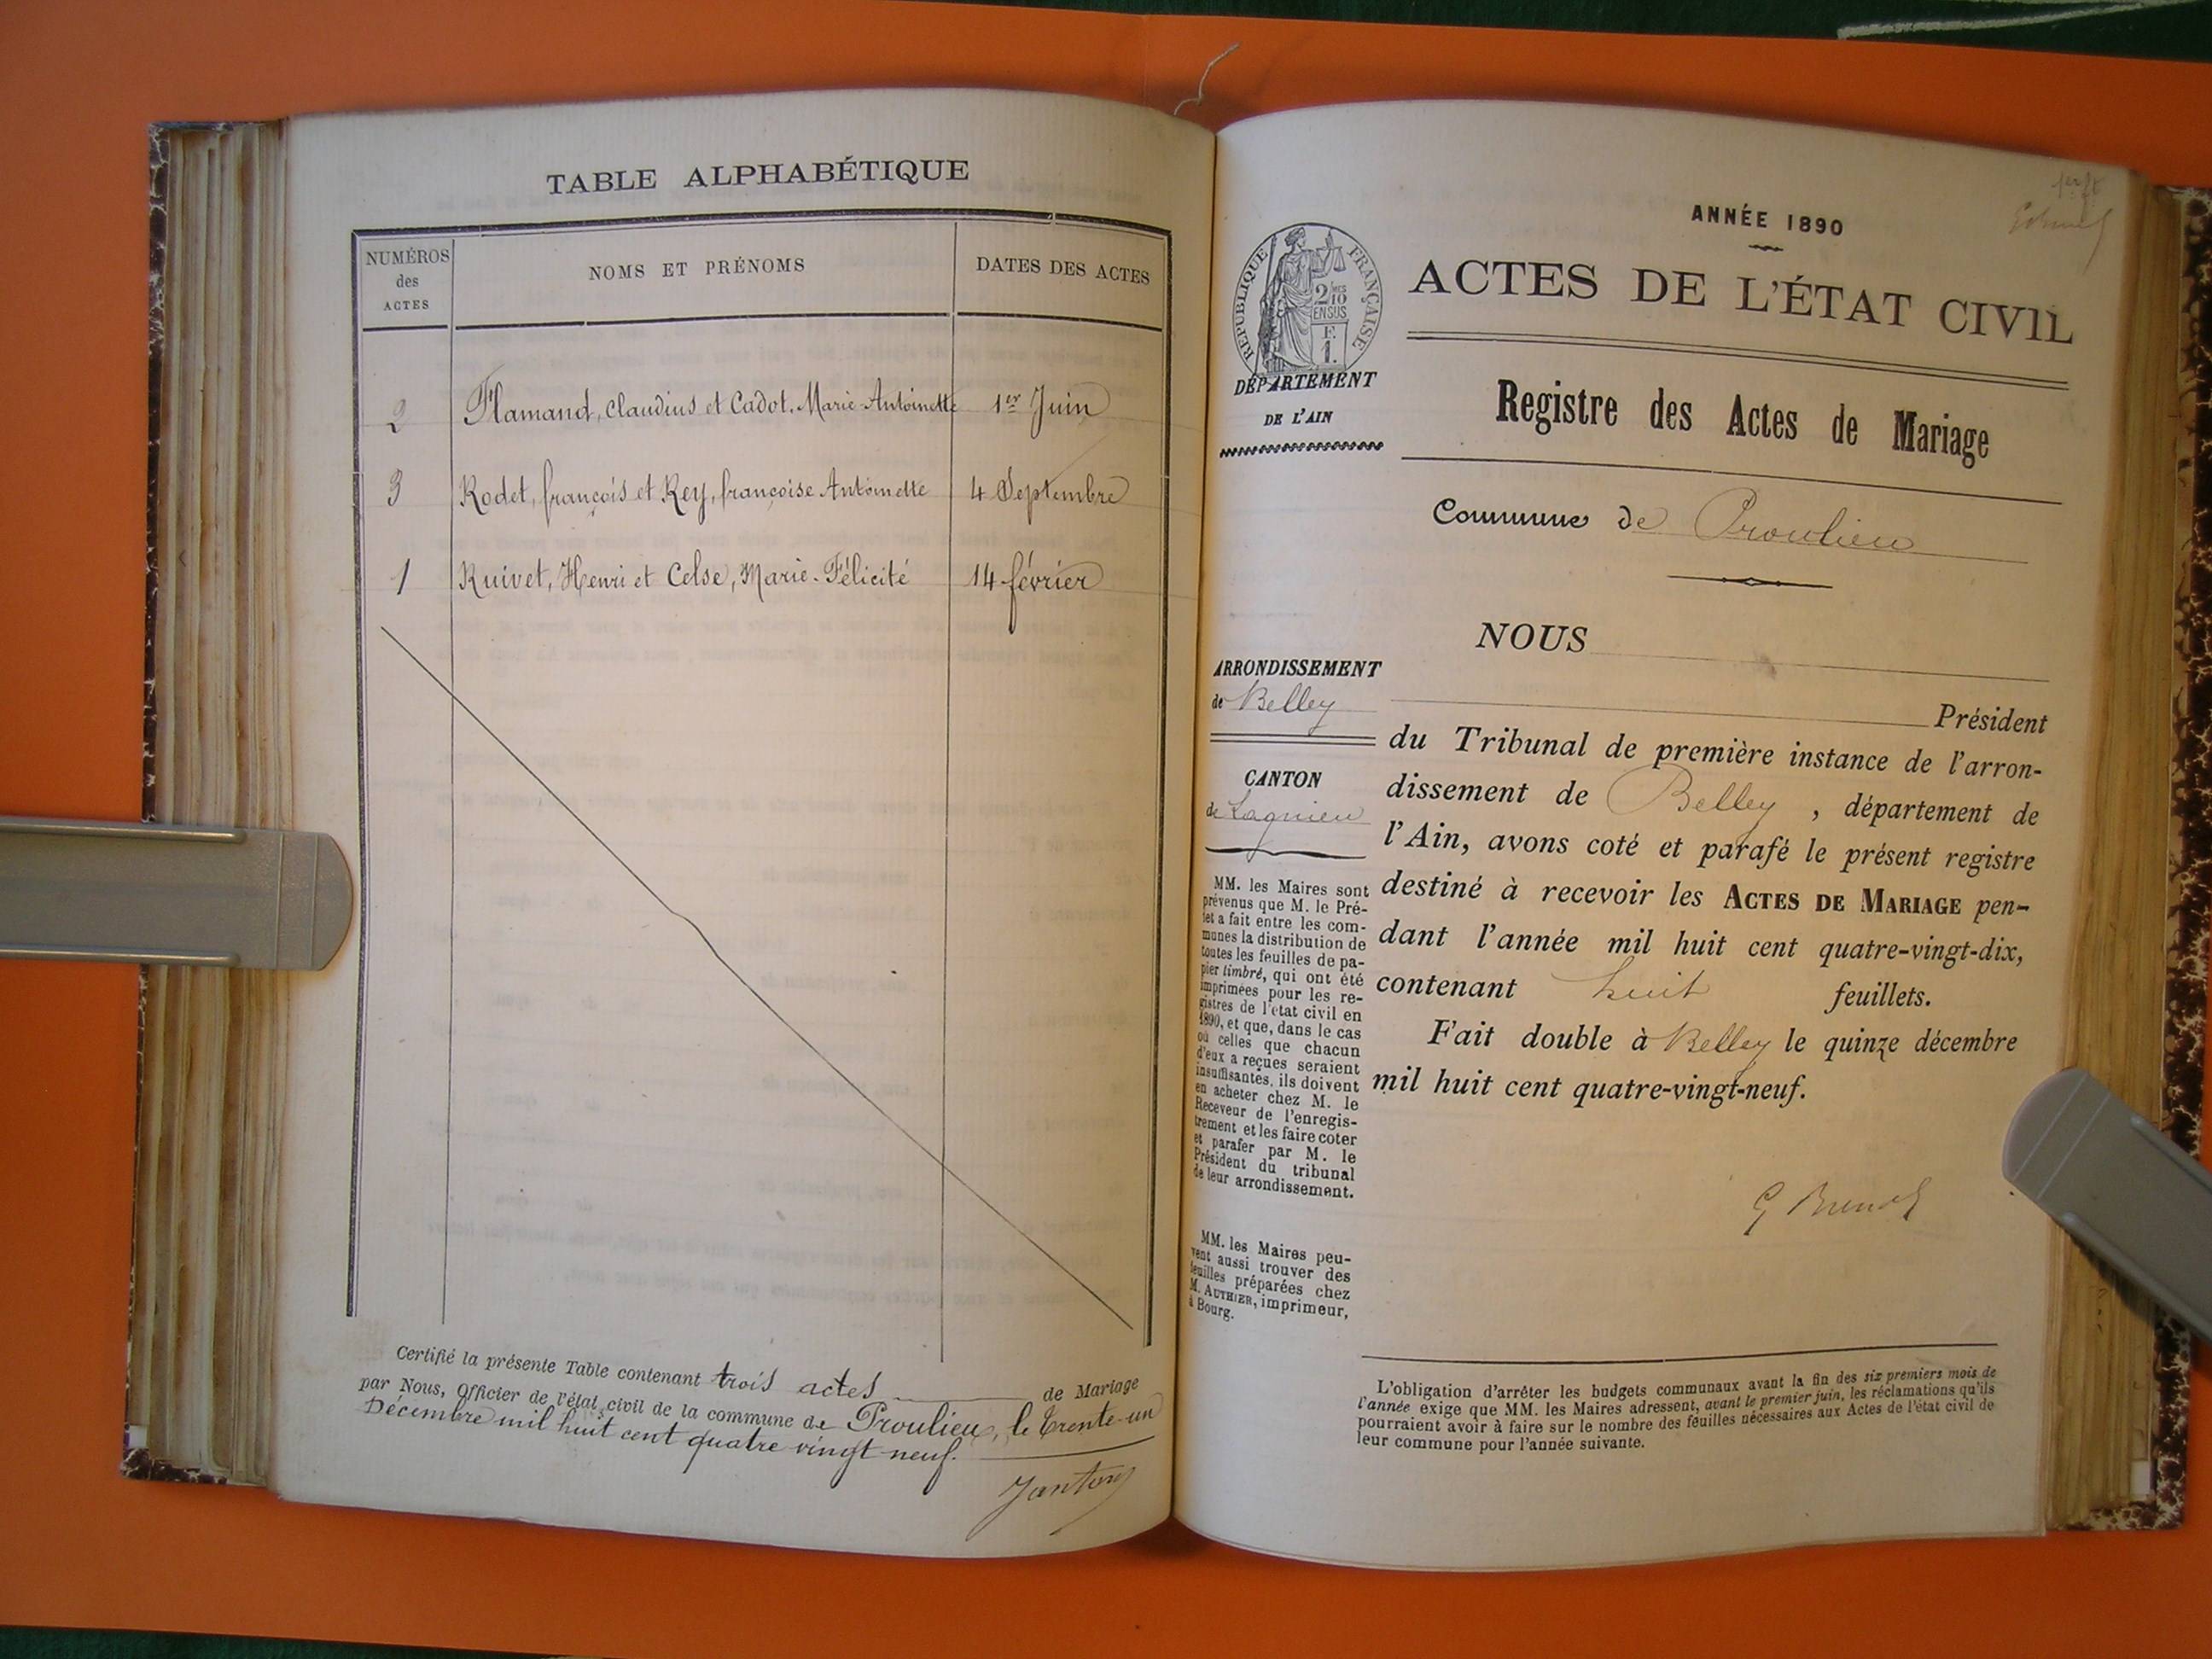 TABLE ALPHABÉTIQUE
NUMÉROS
des
ACTES
NOMS ET PRÉNOMS
DATES DES ACTES
2 Flamand, Claudius et Cadot, Marie-Antoinette 1er Juin
3 Rodet, françois et Rey, françoise Antoinette 4 Septembre
1 Ruivet, Henri et Celse, Marie-Félicité 14 février
Certifié la présente Table contenant trois actes de Mariage
par Nous, Officier de l'état civil de la commune de Proulieu, le trente-un
Décembre mil huit cent quatre vingt neuf.
ANNÉE 1890
ACTES DE L'ÉTAT CIVIL
RÉPUBLIQUE FRANÇAISE
2 MES
10
EN SUS
F.
1.
DÉPARTEMENT
DE L'AIN
Registre des Actes de Mariage
Commune de Proulieu
ARRONDISSEMENT
de Belley
CANTON
de Lagnieu
MM. les Maires sont
prévenus que M. le Pré-
fet a fait entre les com-
munes la distribution de
toutes les feuilles de pa-
pier timbré, qui ont été
imprimées pour les re-
gistres de l'état civil en
1890, et que, dans le cas
où celles que chacun
d'eux a reçues seraient
insuffisantes, ils doivent
en acheter chez M. le
Receveur de l'enregis-
trement et les faire coter
et parafer par M. le
Président du tribunal
de leur arrondissement.
MM. les Maires peu-
vent aussi trouver des
feuilles préparées chez
M. AUTHIER, imprimeur,
à Bourg.
NOUS
Président
du Tribunal de première instance de l'arron-
dissement de Belley, département de
l'Ain, avons coté et parafé le présent registre
destiné à recevoir les ACTES DE MARIAGE pen-
dant l'année mil huit cent quatre-vingt-dix,
contenant huit feuillets.
Fait double à Belley le quinze décembre
mil huit cent quatre-vingt-neuf.
L'obligation d'arrêter les budgets communaux avant la fin des six premiers mois de
l'année exige que MM. les Maires adressent, avant le premier juin, les réclamations qu'ils
pourraient avoir à faire sur le nombre des feuilles nécessaires aux Actes de l'état civil de
leur commune pour l'année suivante.